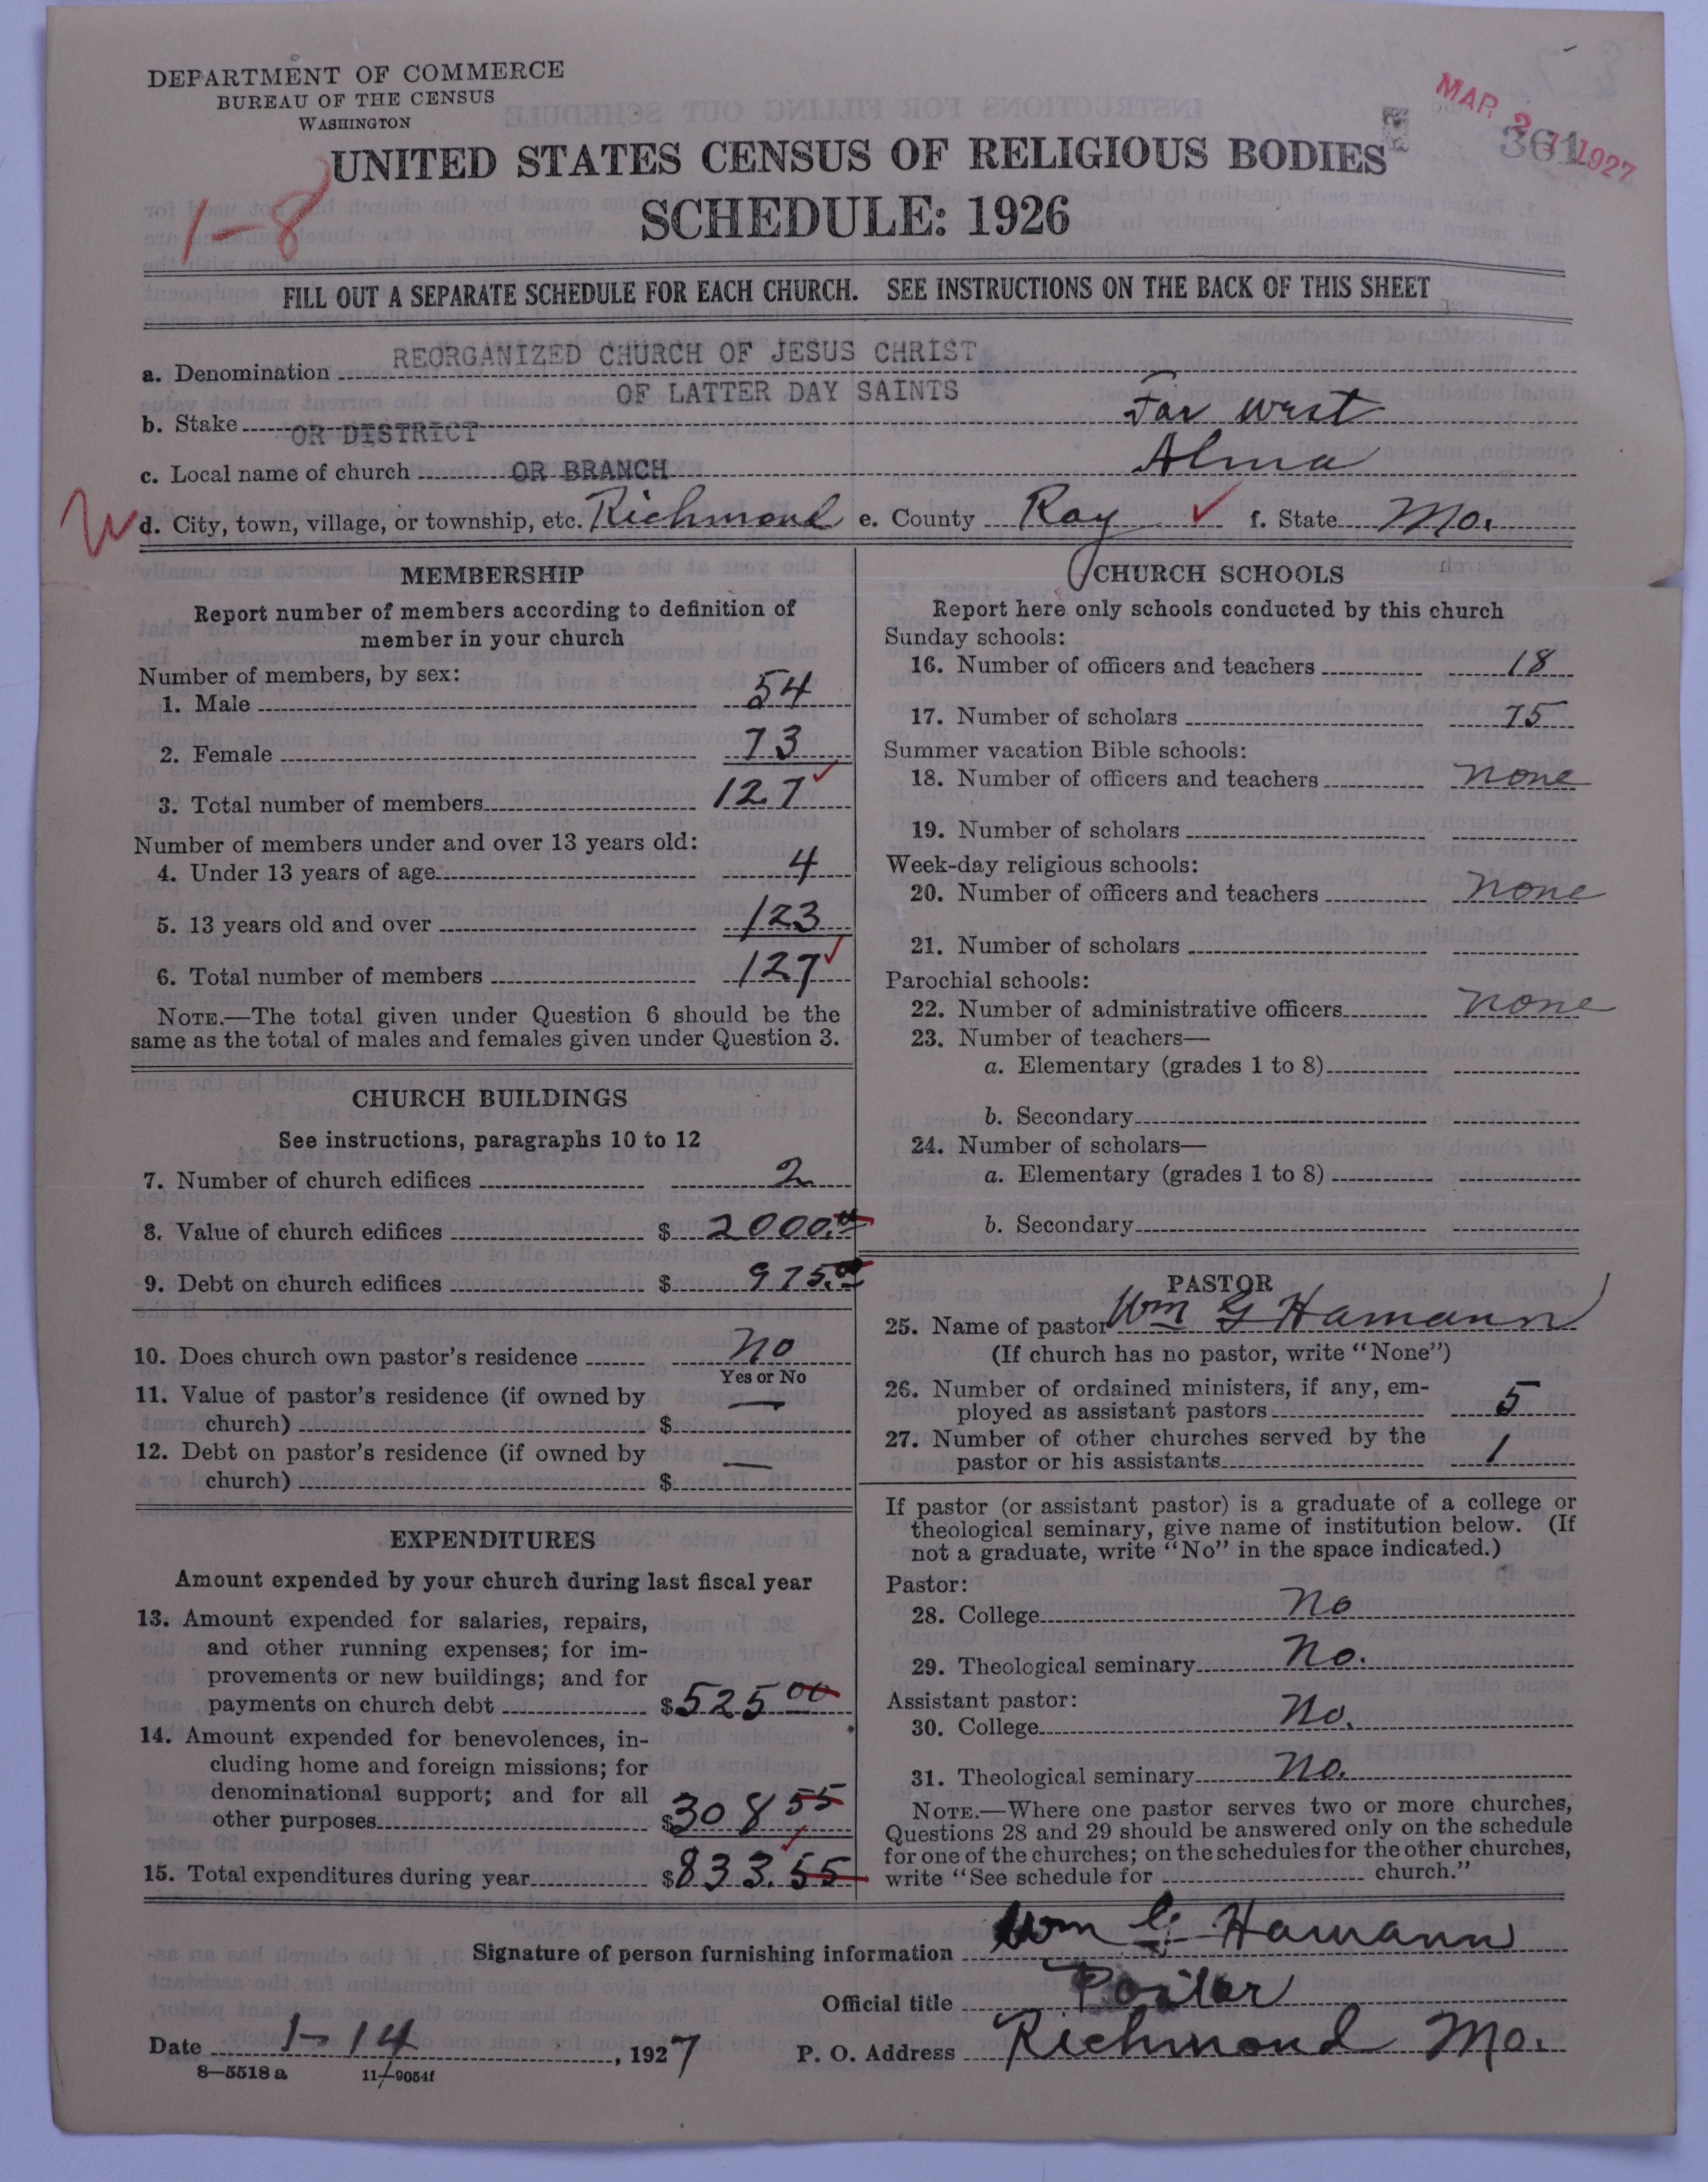 DEPARTMENT OF COMMERCE
BUREAU OF THE CENSUS
WASHINGTON
MAR 2 1927
361
UNITED STATES CENSUS OF RELIGIOUS BODIES
1-8
SCHEDULE: 1926
FILL OUT A SEPARATE SCHEDULE FOR EACH CHURCH. SEE INSTRUCTIONS ON THE BACK OF THIS SHEET
a. Denomination REORGANIZED CHURCH OF JESUS CHRIST
OF LATTER DAY SAINTS
b. Stake OR DISTRICT Far West
c. Local name of church OR BRANCH Alma
d. City, town, village, or township, etc. Richmond e. County Ray ✓ f. State Mo.
MEMBERSHIP
Report number of members according to definition of
member in your church
Number of members, by sex:
1. Male 54
2. Female 73
3. Total number of members 127 ✓
Number of members under and over 13 years old:
4. Under 13 years of age 4
5. 13 years old and over 123
6. Total number of members 127 ✓
NOTE.—The total given under Question 6 should be the
same as the total of males and females given under Question 3.
CHURCH BUILDINGS
See instructions, paragraphs 10 to 12
7. Number of church edifices 2
8. Value of church edifices $ 2000.00
9. Debt on church edifices $ 975.00
10. Does church own pastor's residence No
Yes or No
11. Value of pastor's residence (if owned by
church) $ —
12. Debt on pastor's residence (if owned by
church) $ —
EXPENDITURES
Amount expended by your church during last fiscal year
13. Amount expended for salaries, repairs,
and other running expenses; for im-
provements or new buildings; and for
payments on church debt $ 525 00
14. Amount expended for benevolences, in-
cluding home and foreign missions; for
denominational support; and for all
other purposes $ 308 55
15. Total expenditures during year $ 833.55
CHURCH SCHOOLS
Report here only schools conducted by this church
Sunday schools:
16. Number of officers and teachers 18
17. Number of scholars 75
Summer vacation Bible schools:
18. Number of officers and teachers none
19. Number of scholars
Week-day religious schools:
20. Number of officers and teachers none
21. Number of scholars
Parochial schools:
22. Number of administrative officers none
23. Number of teachers—
a. Elementary (grades 1 to 8)
b. Secondary
24. Number of scholars—
a. Elementary (grades 1 to 8)
b. Secondary
PASTOR
25. Name of pastor Wm G Hamann
(If church has no pastor, write "None")
26. Number of ordained ministers, if any, em-
ployed as assistant pastors 5
27. Number of other churches served by the
pastor or his assistants 1
If pastor (or assistant pastor) is a graduate of a college or
theological seminary, give name of institution below. (If
not a graduate, write "No" in the space indicated.)
Pastor:
28. College No
29. Theological seminary No.
Assistant pastor:
30. College No.
31. Theological seminary No.
NOTE.—Where one pastor serves two or more churches,
Questions 28 and 29 should be answered only on the schedule
for one of the churches; on the schedules for the other churches,
write "See schedule for church."
Signature of person furnishing information Wm G. Hamann
Official title Pastor
Date 1-14, 1927 P. O. Address Richmond Mo.
8—5518 a 11—9054f